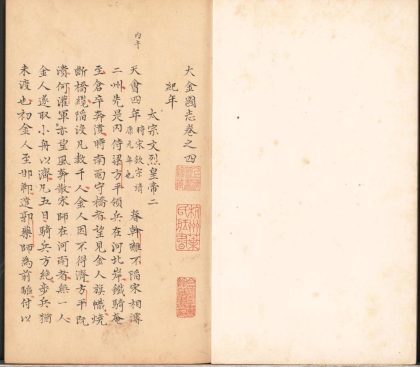 大金國志卷之四
紀年
太宗文烈皇帝二
丙午
天會四年時宋欽宗靖康元年也春斡離不陷宋相濬
二州先是內侍梁方平領兵在河北岸鐵騎奄
至倉卒奔潰時南面守橋者望見金人旗幟燒
斷橋纜陷沒凡數千人金人因不得濟方平既
潰何灌軍亦望風散宋師在河南者無一人
金人遂取小舟以濟凡五日騎兵方絕步兵猶
未渡也初金人至邯鄲遣郭藥師為前驅付以
杭州葉氏藏書